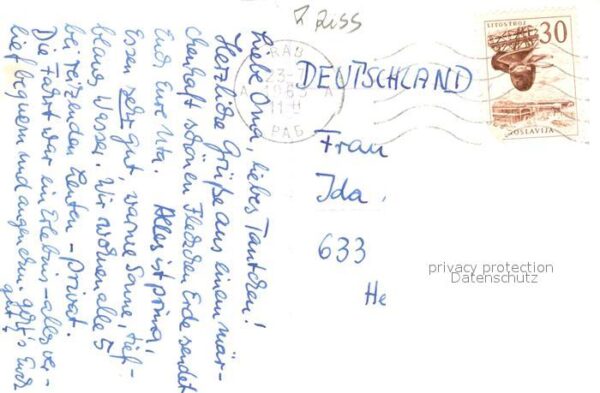 Riss
DEUTSCHLAND
LITOSTROJ
30
JUGOSLAVIJA
RAB
23-7
196
11-
РАБ
Liebe Oma, liebes Tantchen!
Herzliche Grüße aus einem mär-
chenhaft schönen Fleckchen Erde sendet
Euch Eure Uta. Alles ist prima,
Essen sehr gut, warme Sonne, tief-
blaues Wasser. Wir wohnen alle 5
bei reizenden Leuten - privat.
Die Fahrt war ein Erlebnis - alles ver-
lief bequem und angenehm. Geht's Euch
gut?
Frau
Ida
633
He
privacy protection
Datenschutz